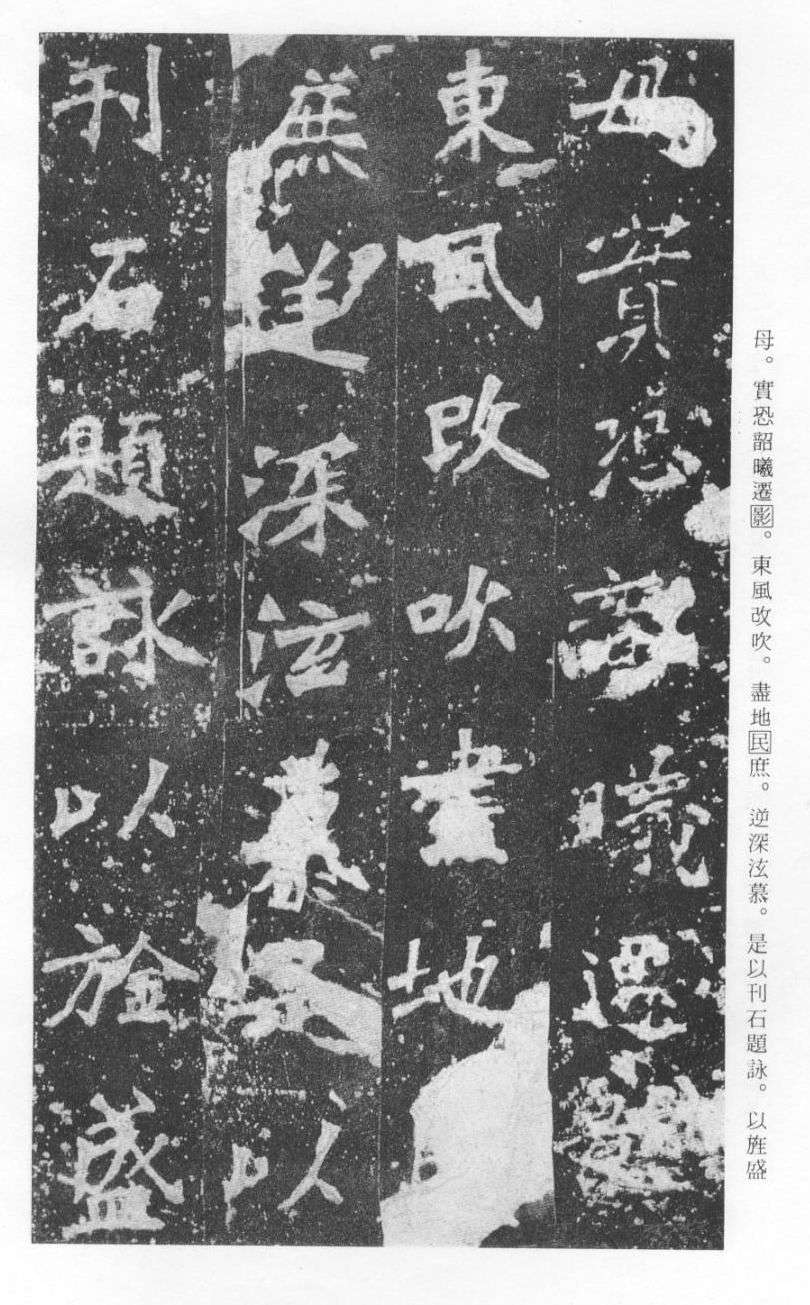 母。實恐韶曦遷影。東風改吹。盡地民庶。逆深泫慕。是以刊石題詠。以旌盛
母實恐韶曦遷
東風改吹盡地
庶逆深泫慕是以
刊石題詠以旌盛